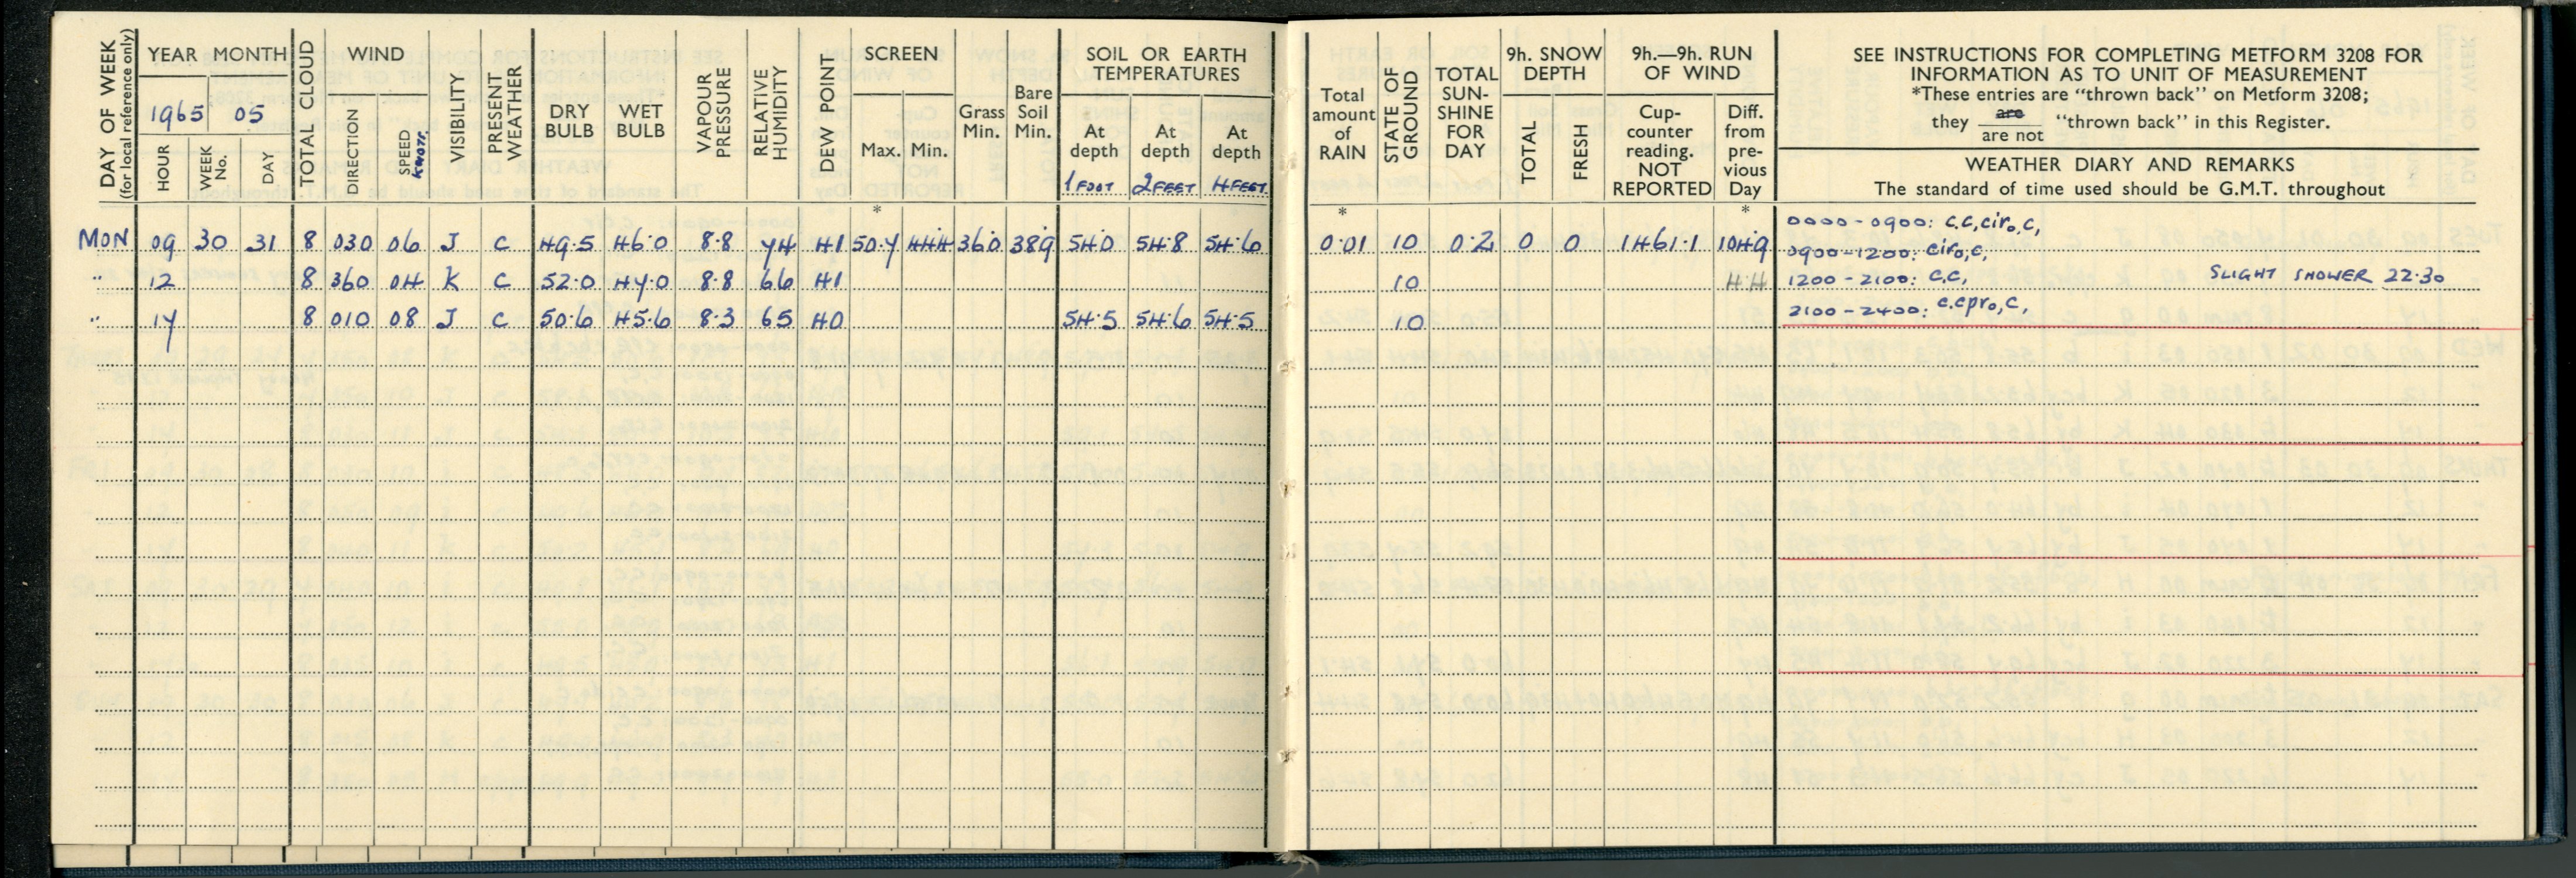 DAY OF WEEK
(for local reference only)
YEAR MONTH
1965 05
HOUR
WEEK No.
DAY
TOTAL CLOUD
WIND
DIRECTION
SPEED KNOTS.
VISIBILITY
PRESENT WEATHER
DRY BULB
WET BULB
VAPOUR PRESSURE
RELATIVE HUMIDITY
DEW POINT
SCREEN
Max. Min.
Grass Min.
Bare Soil Min.
SOIL OR EARTH
TEMPERATURES
At depth 1 FOOT
At depth 2 FEET
At depth 4 FEET
*
MON 09 30 31 8 030 06 J C 49.5 46.0 8.8 74 41 50.7 44.4 36.0 38.9 54.0 54.8 54.6
" 12 8 360 04 K C 52.0 47.0 8.8 66 41
" 17 8 010 08 J C 50.6 45.6 8.3 65 40 54.5 54.6 54.5
Total amount of RAIN
STATE OF GROUND
TOTAL SUN-SHINE FOR DAY
9h. SNOW DEPTH
TOTAL
FRESH
9h.—9h. RUN OF WIND
Cup-counter reading. NOT REPORTED
Diff. from pre-vious Day
SEE INSTRUCTIONS FOR COMPLETING METFORM 3208 FOR
INFORMATION AS TO UNIT OF MEASUREMENT
*These entries are "thrown back" on Metform 3208;
they are / are not "thrown back" in this Register.
WEATHER DIARY AND REMARKS
The standard of time used should be G.M.T. throughout
* *
0.01 10 0.2 0 0 1461.1 104.9 0000 - 0900: c.c,ciro,c,
0900-1200: ciro,c,
10 4.4 1200 - 2100: c.c, SLIGHT SHOWER 22.30
10 2100-2400: c.cpro,c,